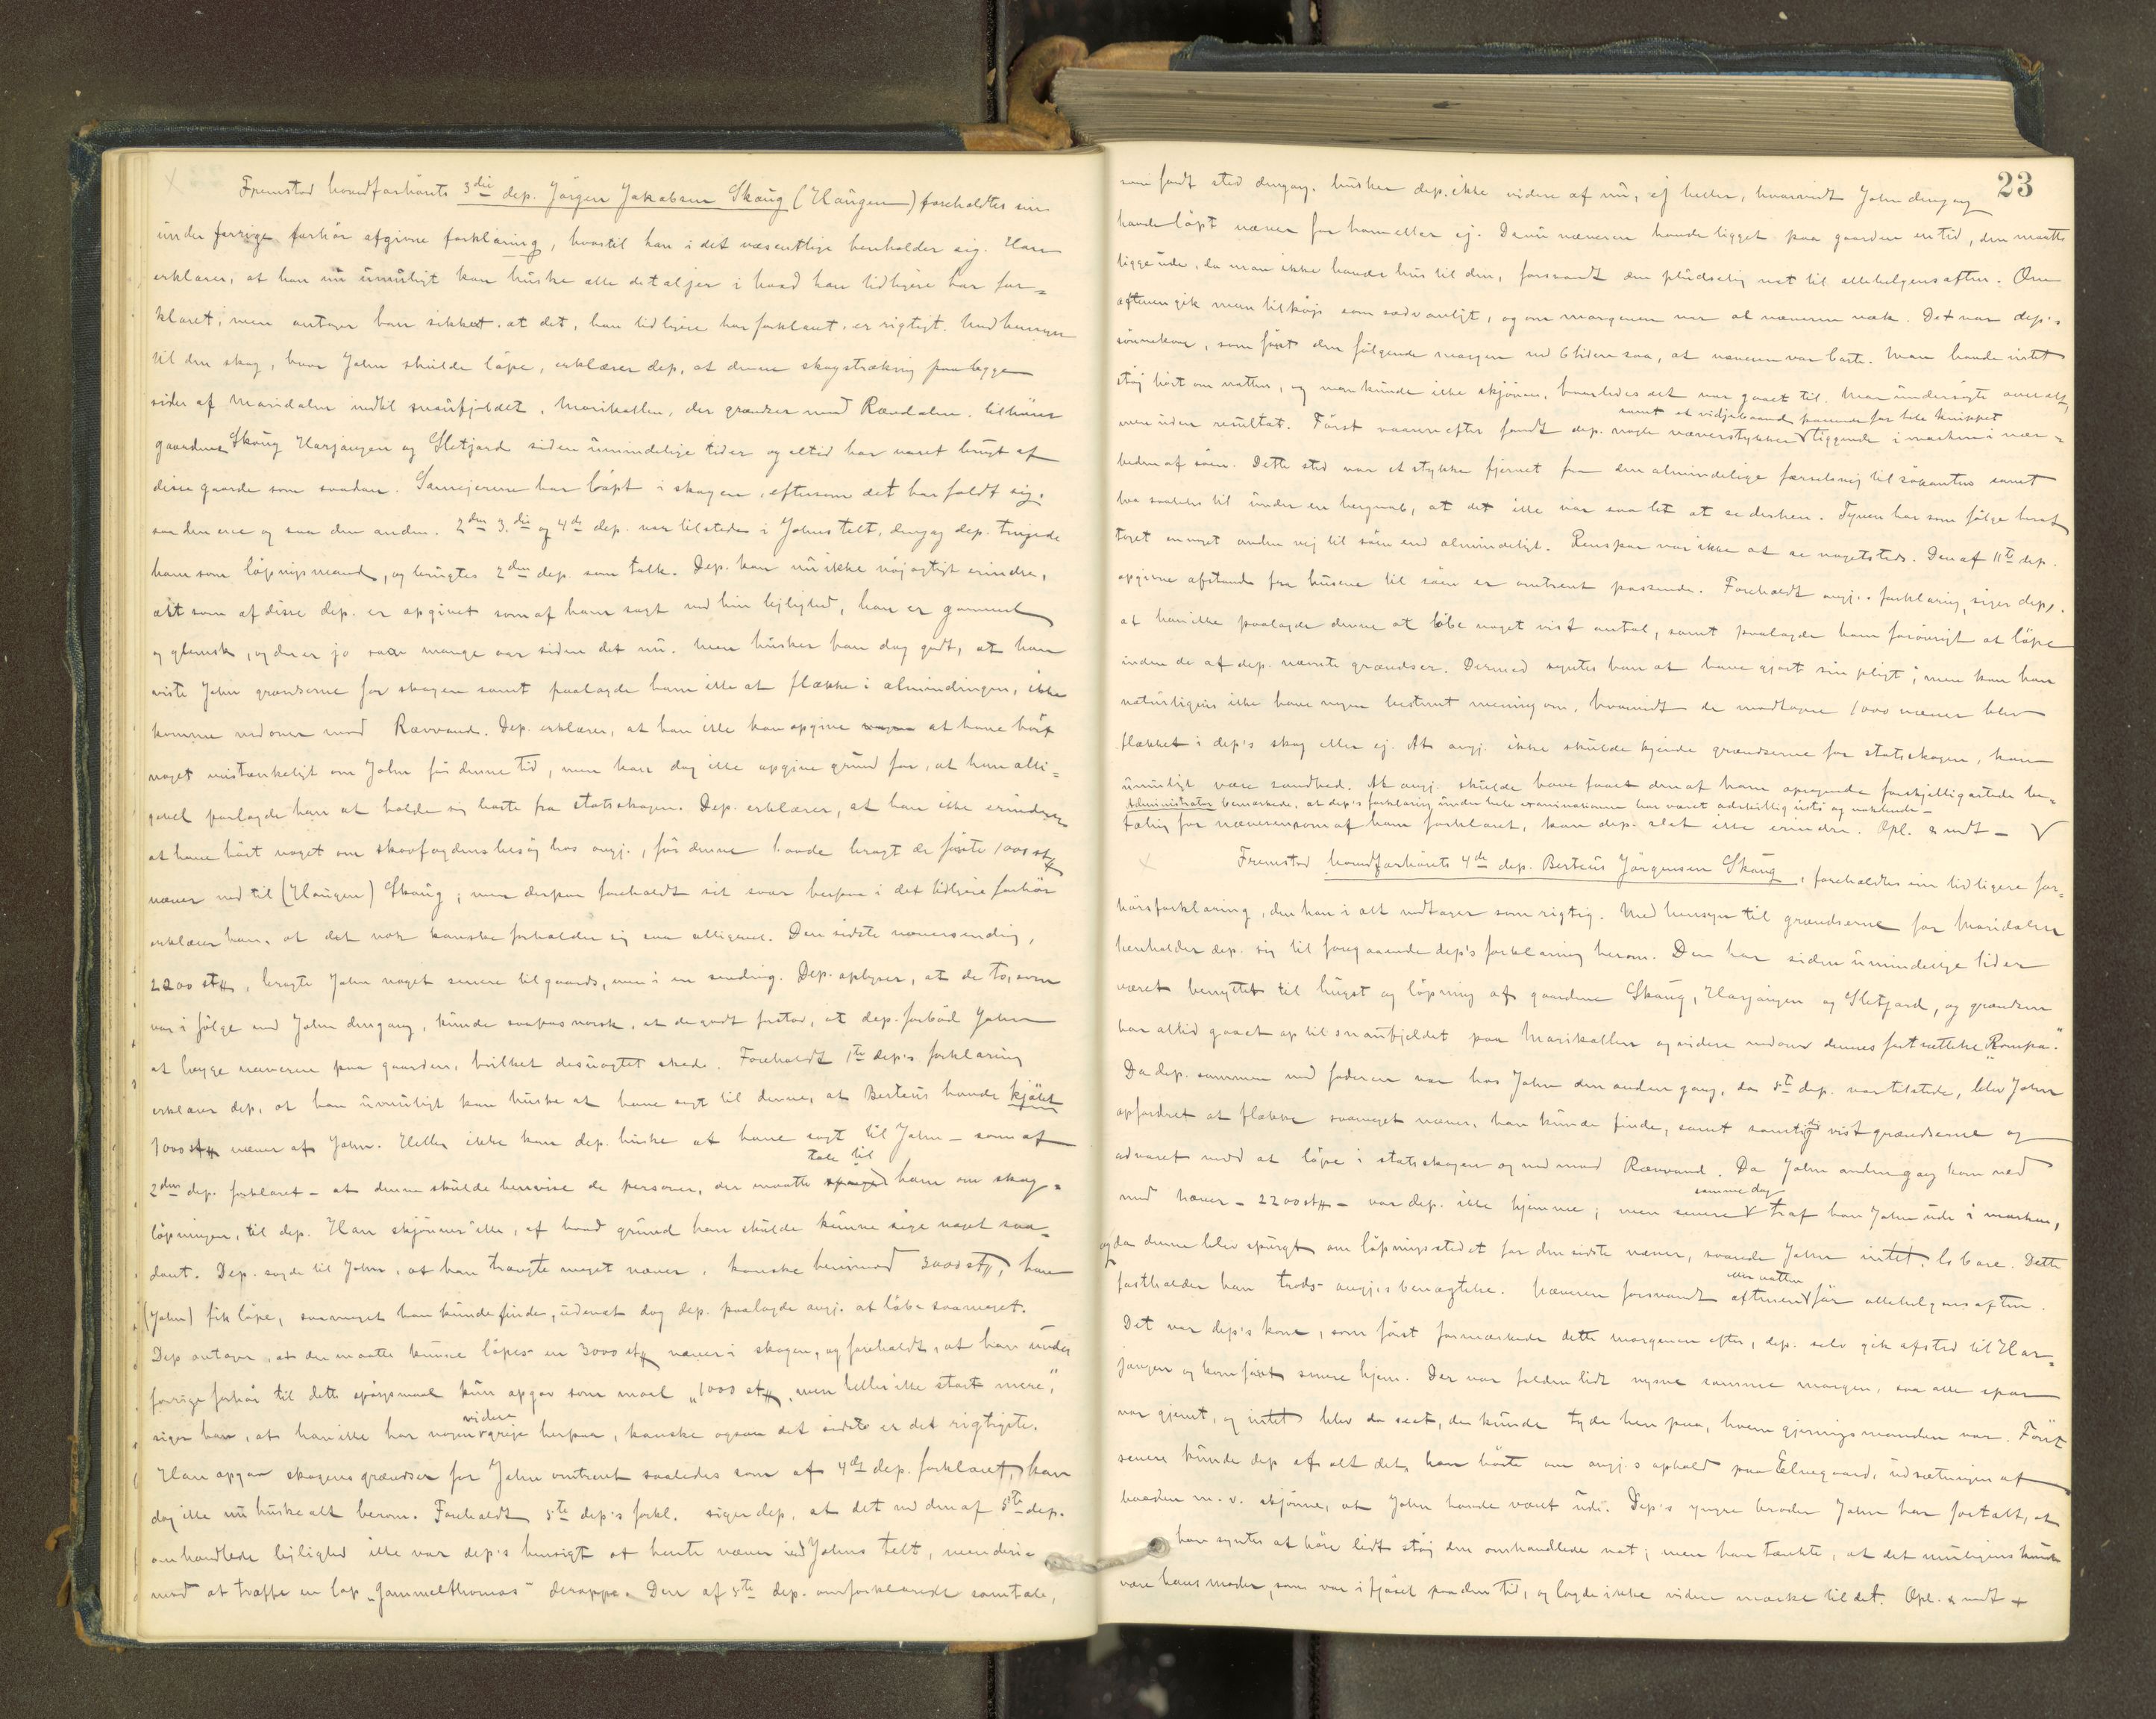 Fremstod hovedforhörets 3die dep. Jörgen Jakobsen Skoug (Haugen) foreholdtes sin
under forrige forhör afgivne forklaring, hvortil han i det væsentlige henholder sig. Han
erklærer, at han nu umuligt kan huske alle detaljer i hvad han tidligere har for-
klaret, men antager han sikkert, at det, han tidligere har forklaret, er rigtigt. Med hensyn
til den skog, hvor John skulde löpe, erklærer dep, at denne skogstrækning paa begge
sider af Maridalen indtil snaufjeldet, Marikollen, der grændser mod Rændalen, tilhörer
gaardene Skoug Harjangen og Sletjord siden umindelige tider og altid har været brugt af
disse gaarde som saadan. Samejerne har löpt i skogen, eftersom det har faldt sig,
saa den ene og saa den anden. 2den 3.die og 4de dep. var tilstede i Johns telt, dengang dep. tingede
ham som löpningsmand, og brugtes 2den dep. som tolk. Dep. kan nu ikke nöjagtigt erindre,
alt som af disse dep. er opgivet som af ham sagt ved hin lejlighed, han er gammel
og glemsk, og der er jo saa mange aar siden det nu. Men husker han dog godt, at han
viste John grændserne for skogen samt paalagde ham ikke at flække i almindingen, ikke
komme nedover mod Rævvand. Dep. erklærer, at han ikke kan opgive at have hört
noget mistænkeligt om John för denne tid, men kan dog ikke opgive grund for, at han alli-
gevel paalagde ham at holde sig borte fra statsskogen. Dep. erklærer, at han ikke erindrer
at have hört noget om skovfogdens besög hos angj., för denne havde bragt de første 1000 st
næver ned til (Haugen) Skoug; men derpaa foreholdt sit svar herpaa i det tidligere forhör
erklærer han, at det nok kanske forholder sig saa alligevel. Den sidste næversending,
2200 st, bragte John noget senere tilgaards, men i en sending. Dep. oplyser, at de to, som
var i fölge med John dengang, kunde saapas norsk, at de godt forstod, at dep. forböd John
at lægge næveren paa gaarden, hvilket desuagtet skede. Foreholdt 1ste dep's forklaring
erklærer dep, at han umuligt kan huske at have sagt til denne, at Berteus havde kjöbt
1000 st næver af John. Heller ikke kan dep. huske at have sagt til John – som af
2den dep. forklaret – at denne skulde henvise de personer, der maatte tale til ham om skog-
löpningen, til dep. Han skjönner ikke, af hvad grund han skulde kunne sige noget saa-
dant. Dep. sagde til John, at han trængte meget næver, kanske henimod 3000 st, han
(John) fik löpe, saa meget han kunde finde, uden at dog dep. paalagde angj. at löbe saameget.
Dep antager, at der maatte kunne löpes en 3000 st næver i skogen, og foreholdt, at han under
forrige forhör til dette spörgsmaal kun opgav som maal „1000 st, men heller ikke stort mere",
siger han, at han ikke har nogen videre greje herpaa, kanske ogsaa det sidste er det rigtigste.
Han opgav skogens grændser for John omtrent saaledes som af 4de dep. forklaret, kan
dog ikke nu huske alt herom. Foreholdt 5te dep's forkl. siger dep. at det ved den af 5te dep.
omhandlede lejlighed ikke var dep's hensigt at hente næver ved Johns telt, men derimod
mod at træffe en lap „Gammelthomas" deroppe. Den af 5te dep. omforklarede samtale,

23
som fandt sted dengang, husker dep. ikke videre af nu, ej heller, hvorvidt John dengang
havde löpt næver for ham eller ej. Da nu næveren havde ligget paa gaarden en tid, den maatte
ligge ude, da man ikke havde hus til den, forsvandt den pludselig nat til allehelgensaften. Om
aftenen gik man tilköjs som sædvanligt, og om morgenen var al næveren væk. Det var dep's
sönnekone, som først den fölgende morgen ved 6 tiden saa, at næveren var borte. Man havde intet
stöj hört om natten, og man kunde ikke skjönne, hvorledes det var gaaet til. Man undersögte overalt,
men uden resultat. Först vaaren efter fandt dep. nogle næverstykker samt et vidjebaand passende for hele knippet liggende i marken i nær-
heden af söen. Dette sted var et stykke fjernet fra den almindelige færselsvej til sökanten samt
laa saaledes til under en bergnab, at det ikke var saa let at se derhen. Tyven har som fölge heraf
taget en noget anden vej til söen end almindeligt. Renspor var ikke at se nogetsteds. Den af 11te dep.
opgivne afstand fra husene til söen er omtrent passende. Foreholdt angj.s forklaring, siger dep.,
at han ikke paalagde denne at löbe noget vist antal, samt paalagde ham forövrigt at löpe
inden de af dep. nævnte grændser. Dermed syntes han at have gjort sin pligt; men kan han
naturligvis ikke have nogen bestemt mening om, hvorvidt de modtagne 1000 næver blev
flækket i dep's skog eller ej. At angj. ikke skulde kjende grændserne for statsskogen, kan
umuligt være sandhed. At angj. skulde have faaet den af ham opgivende forskjelligartede be-
Administrator bemærkede, at dep's forklaring under hele examinationen har været adskillig usti og vaklende –
taling for næveren som af ham forklaret, kan dep. slet ikke erindre. Opl. & vedt –
Fremstod hovedforhörets 4de dep. Berteus Jörgensen Skoug, foreholdtes sin tidligere for-
hörsforklaring, den han i alt vedtager som rigtig. Med hensyn til grændserne for Maridalen
henholder dep. sig til foregaaende dep's forklaring herom. Den har siden umindelige tider
været benyttet til hugst og löpning af gaardene Skoug, Harjangen og Sletjord, og grændsen
har altid gaaet op til snaufjeldet paa Marikollen og videre nedover dennes fortsættelse „Rompa."
Da dep. sammen med faderen var hos John den anden gang, da 5te dep. var tilstede, blev John
opfordret at flække saameget næver, han kunde finde, samt samtidig vist grændserne og
advaret mod at löpe i statsskogen og ned mod Rævvand. Da John anden gang kom ned
med næver – 2200 st – var dep. ikke hjemme; men senere samme dag traf han John ude i marken,
og da denne blev spurgt om löpningsstedet for den sidste næver, svarede John intet, lo bare. Dette
fastholder han trods angj.s benægtelse. Næveren forsvandt aftenen eller natten för allehelgensaften.
Det var dep's kone, som först formærkede dette morgenen efter, dep. selv gik afsted til Har-
jangen og kom först senere hjem. Der var falden lidt nysne samme morgen, saa alle spor
var gjemt, og intet blev da seet, der kunde tyde hen paa, hvem gjerningsmanden var. Först
senere kunde dep af alt det, han hörte om angj.s ophold paa Elvegaard, udsætningen af
baaden m.v. skjönne, at John havde været ude. Dep's yngre broder John har fortalt, at
han syntes at höre lidt stöj den omhandlede nat; men han tænkte, at det muligens kunde
være hans moder, som var i fjöset paa den tid, og lagde ikke videre mærke til det. Opl. & vedt